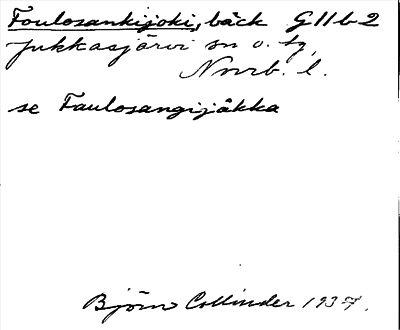 Foulosankijoki, bäck G11b2
Jukkasjärvi sn o. tg,
Nrrb. l.
se Faulosangijåkka
Björn Collinder 1937.